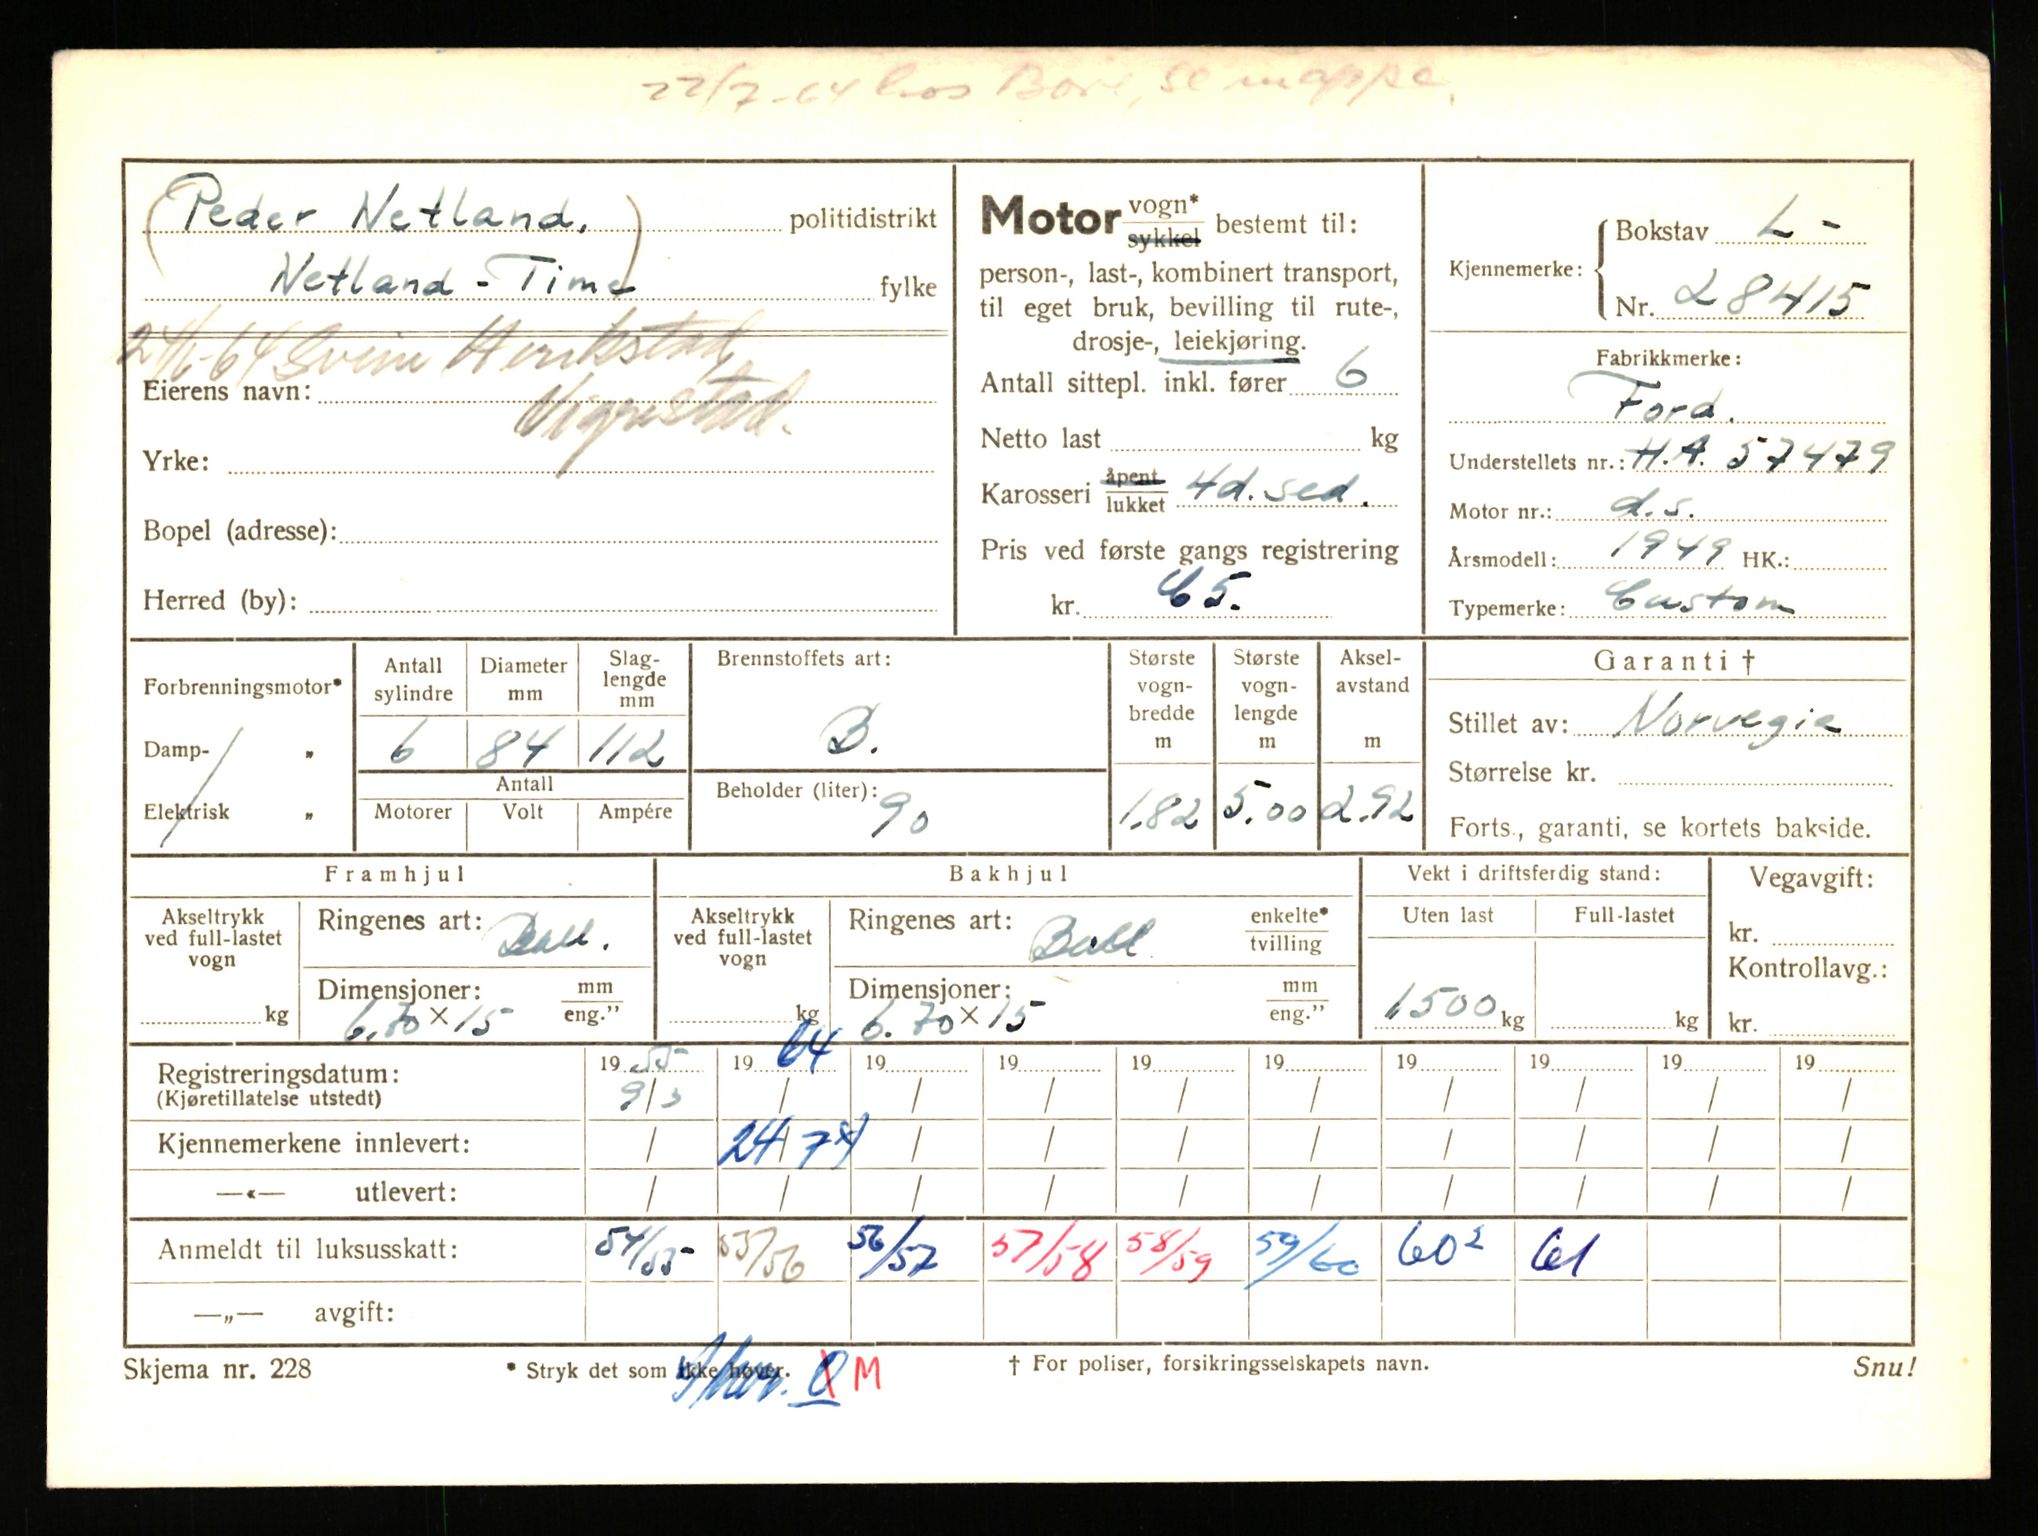 22/7-64 hos Bore, se mappe.
(Peder Netland, politidistrikt
Netland - Time) fylke
24/6-64 Svein Henrikstad,
Eierens navn: Vigrestad.
Yrke:
Bopel (adresse):
Herred (by):
Motor vogn* / sykkel bestemt til:
person-, last-, kombinert transport,
til eget bruk, bevilling til rute-,
drosje-, leiekjøring.
Antall sittepl. inkl. fører 6
Netto last kg
Karosseri åpent / lukket 4d. sed.
Pris ved første gangs registrering
kr. C 5.
Kjennemerke: Bokstav L -
Nr. 28415
Fabrikkmerke:
Ford.
Understellets nr.: H.A. 57479
Motor nr.: d.s.
Årsmodell: 1949 HK.:
Typemerke: Custom
Forbrenningsmotor*
Damp- „
Elektrisk „
Antall sylindre 6
Diameter mm 84
Slaglengde mm 112
Antall
Motorer Volt Ampére
Brennstoffets art:
B.
Beholder (liter): 90
Største vogn-bredde m 1.82
Største vogn-lengde m 5.00
Aksel-avstand m 2.92
Garanti †
Stillet av: Norvegia
Størrelse kr.
Forts., garanti, se kortets bakside.
Framhjul
Akseltrykk ved full-lastet vogn kg
Ringenes art: Ball.
Dimensjoner: mm / eng.”
6.70 × 15
Bakhjul
Akseltrykk ved full-lastet vogn kg
Ringenes art: Ball enkelte* / tvilling
Dimensjoner: mm / eng.”
6.70 × 15
Vekt i driftsferdig stand:
Uten last Full-lastet
1500 kg kg
Vegavgift:
kr.
Kontrollavg.:
kr.
Registreringsdatum: 19 55 19 64 19 19 19 19 19 19 19 19
(Kjøretillatelse utstedt) 9/3 / / / / / / / / /
Kjennemerkene innlevert: / 24/7 / / / / / / / /
—«— utlevert: / / / / / / / / / /
Anmeldt til luksusskatt: 54/55 55/56 56/57 57/58 58/59 59/60 60² 61
—„— avgift:
Skjema nr. 228 * Stryk det som ikke høver. M † For poliser, forsikringsselskapets navn. Snu!